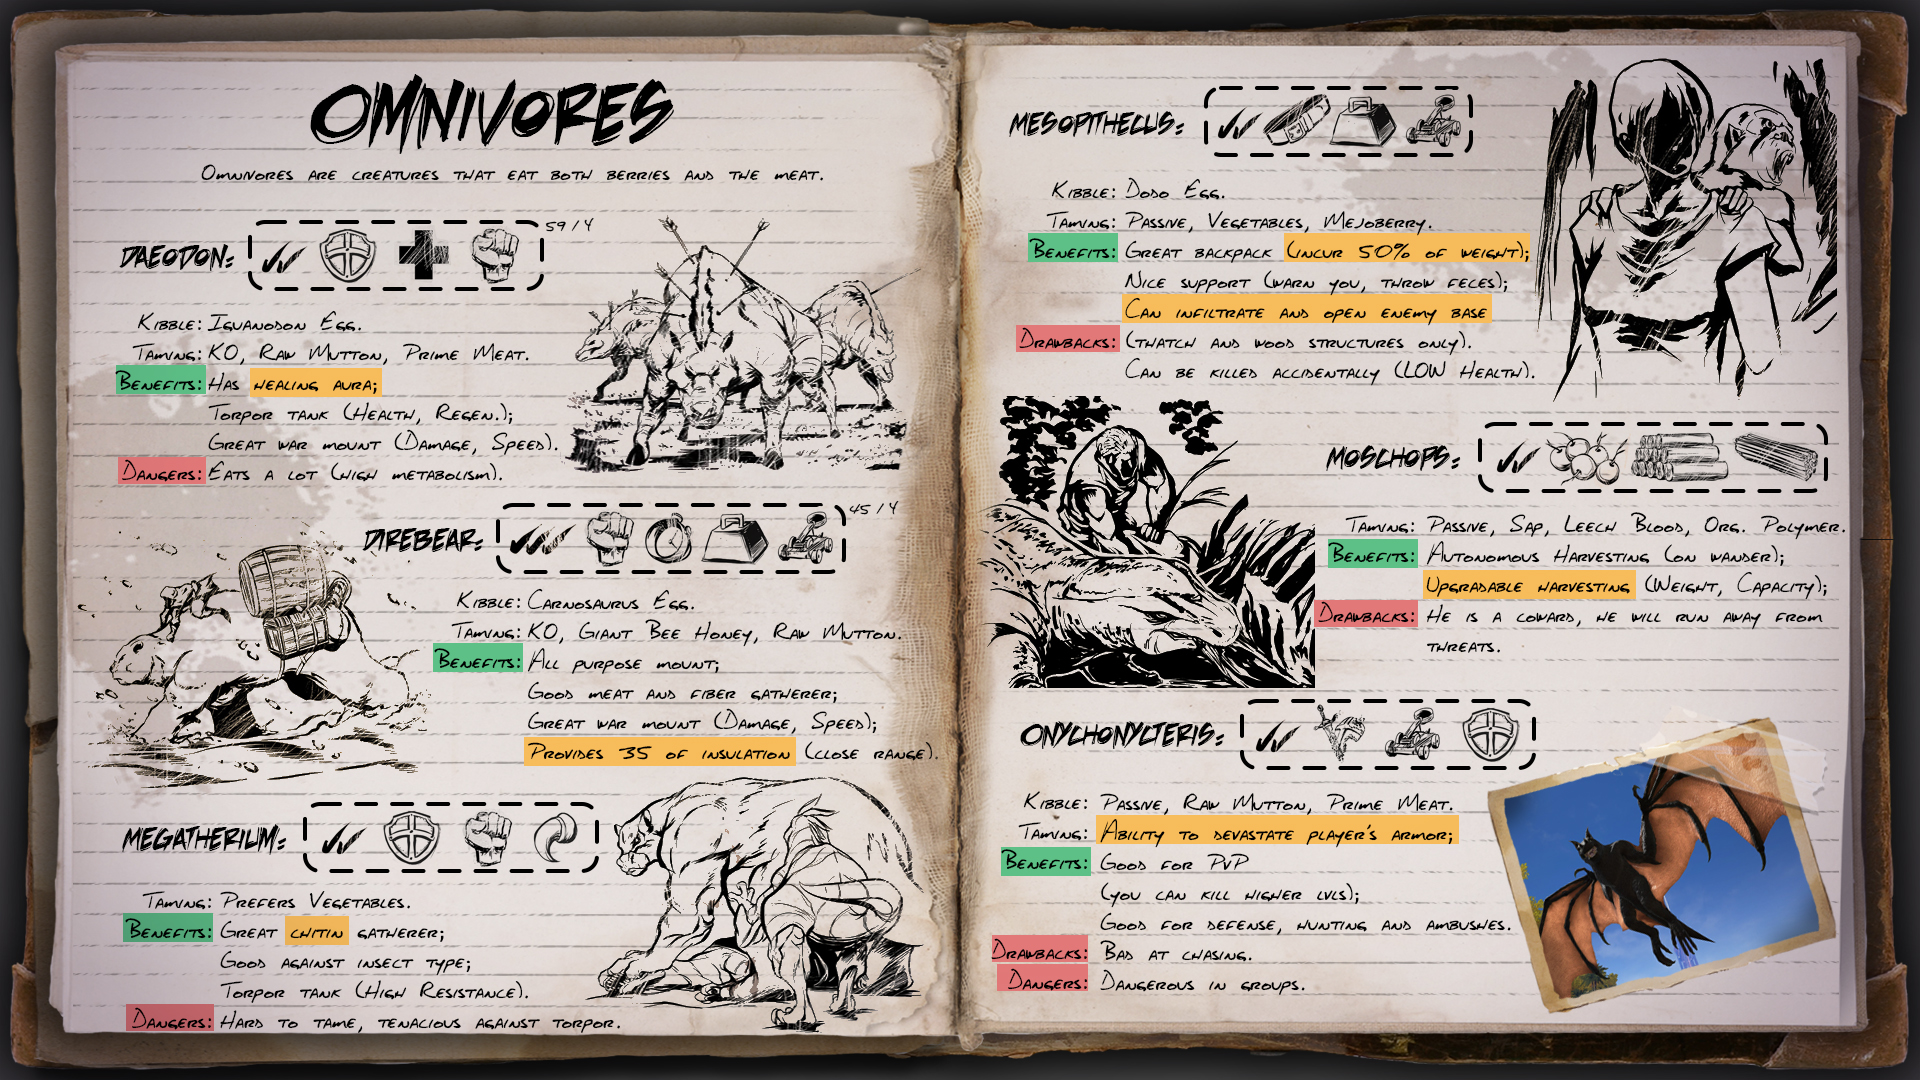 OMNIVORES
Omnivores are creatures that eat both berries and the meat.
DAEODON:
59 / 4
Kibble: Iguanodon Egg.
Taming: KO, Raw Mutton, Prime Meat.
Benefits: Has healing aura;
Torpor tank (Health, Regen.);
Great war mount (Damage, Speed).
Dangers: Eats a lot (high metabolism).
DIREBEAR:
45 / 4
Kibble: Carnosaurus Egg.
Taming: KO, Giant Bee Honey, Raw Mutton.
Benefits: All purpose mount;
Good meat and fiber gatherer;
Great war mount (Damage, Speed);
Provides 35 of insulation (close range).
MEGATHERIUM:
Taming: Prefers Vegetables.
Benefits: Great chitin gatherer;
Good against insect type;
Torpor tank (High Resistance).
Dangers: Hard to tame, tenacious against torpor.
MESOPITHECUS:
Kibble: Dodo Egg.
Taming: Passive, Vegetables, Mejoberry.
Benefits: Great backpack (incur 50% of weight);
Nice support (warn you, throw feces);
Can infiltrate and open enemy base
Drawbacks: (thatch and wood structures only).
Can be killed accidentally (LOW Health).
MOSCHOPS:
Taming: Passive, Sap, Leech Blood, Org. Polymer.
Benefits: Autonomous Harvesting (on wander);
Upgradable harvesting (Weight, Capacity);
Drawbacks: He is a coward, he will run away from
threats.
ONYCHONYCTERIS:
Kibble: Passive, Raw Mutton, Prime Meat.
Taming: Ability to devastate player's armor;
Benefits: Good for PvP
(you can kill higher lvls);
Good for defense, hunting and ambushes.
Drawbacks: Bad at chasing.
Dangers: Dangerous in groups.